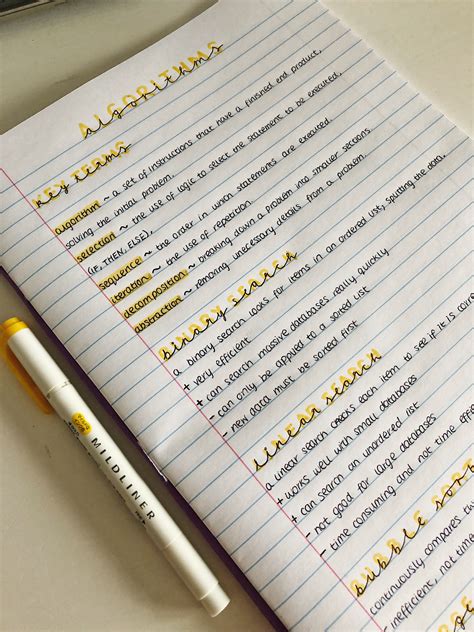 ALGORITHMS
algorithms
KEY TERMS
key terms
algorithm ~ a set of instructions that have a finished end product,
solving the initial problem.
selection ~ the use of logic to select the statement to be executed,
(IF, THEN, ELSE).
sequence ~ the order in which statements are executed.
iteration ~ the use of repetition.
decomposition ~ breaking down a problem into smaller sections.
abstraction ~ removing unnecessary details from a problem.
BINARY SEARCH
binary search
a binary search looks for items in an ordered list, splitting the data.
+ very efficient
+ can search massive databases really quickly
- can only be applied to a sorted list
- new data must be sorted first
LINEAR SEARCH
linear search
a linear search checks each item to see if it is
+ works well with small databases
+ can search an unordered list
- not good for large databases
- time consuming and not time
BUBBLE SORT
bubble sort
continuously compares
- inefficient, not
MILDLINER